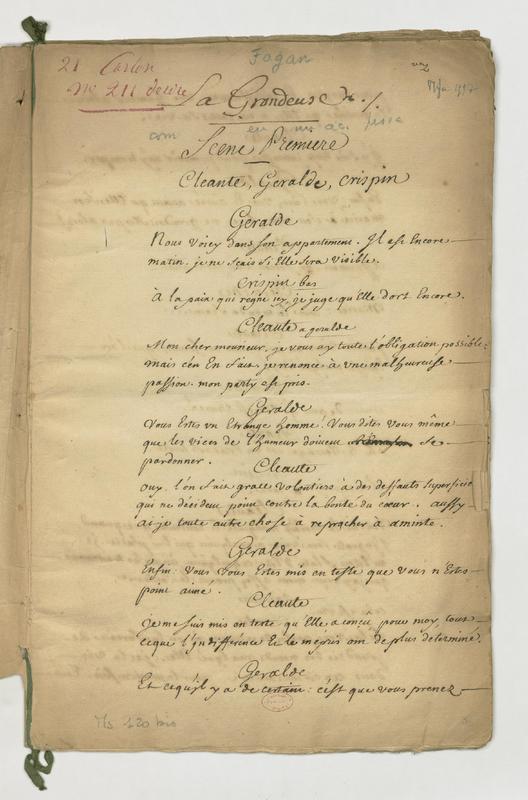 21 Carton
No 211 de liee
Fagan
La Grondeuse
com en un ac.
Scene Premiere
Cleante, Geralde, Crispin
Geralde
Nous voicy dans son appartement. Il est Encore
matin. je ne sçais si Elle sera visible.
Crispin bas
à la paix qui regne icy, je juge qu'Elle dort Encore.
Cleante a geralde
Mon cher monsieur, je vous ay toute l'obligation possible.
mais c'en En fait, je renonce à une malheureuse
passion. mon party est pris.
Geralde
Vous Estes un Etrange homme! Vous dites vous même
que les vices de l'humeur doivent se
pardonner.
Cleante
ouy. l'on fait grace volontiers à des deffauts superficie
qui ne decident point contre la bonté du cœur. aussy
ai-je toute autre chose à reprocher à aminte.
Geralde
Enfin: vous vous Estes mis en teste que vous n'Estes
point aimé.
Cleante
je me suis mis en teste qu'Elle a conçû pour moy, tout
ceque l'yndifférence Et le mépris ont de plus determiné.
Geralde
Et cequ'il y a de certain: c'est que vous prenez
Ms 120 bis